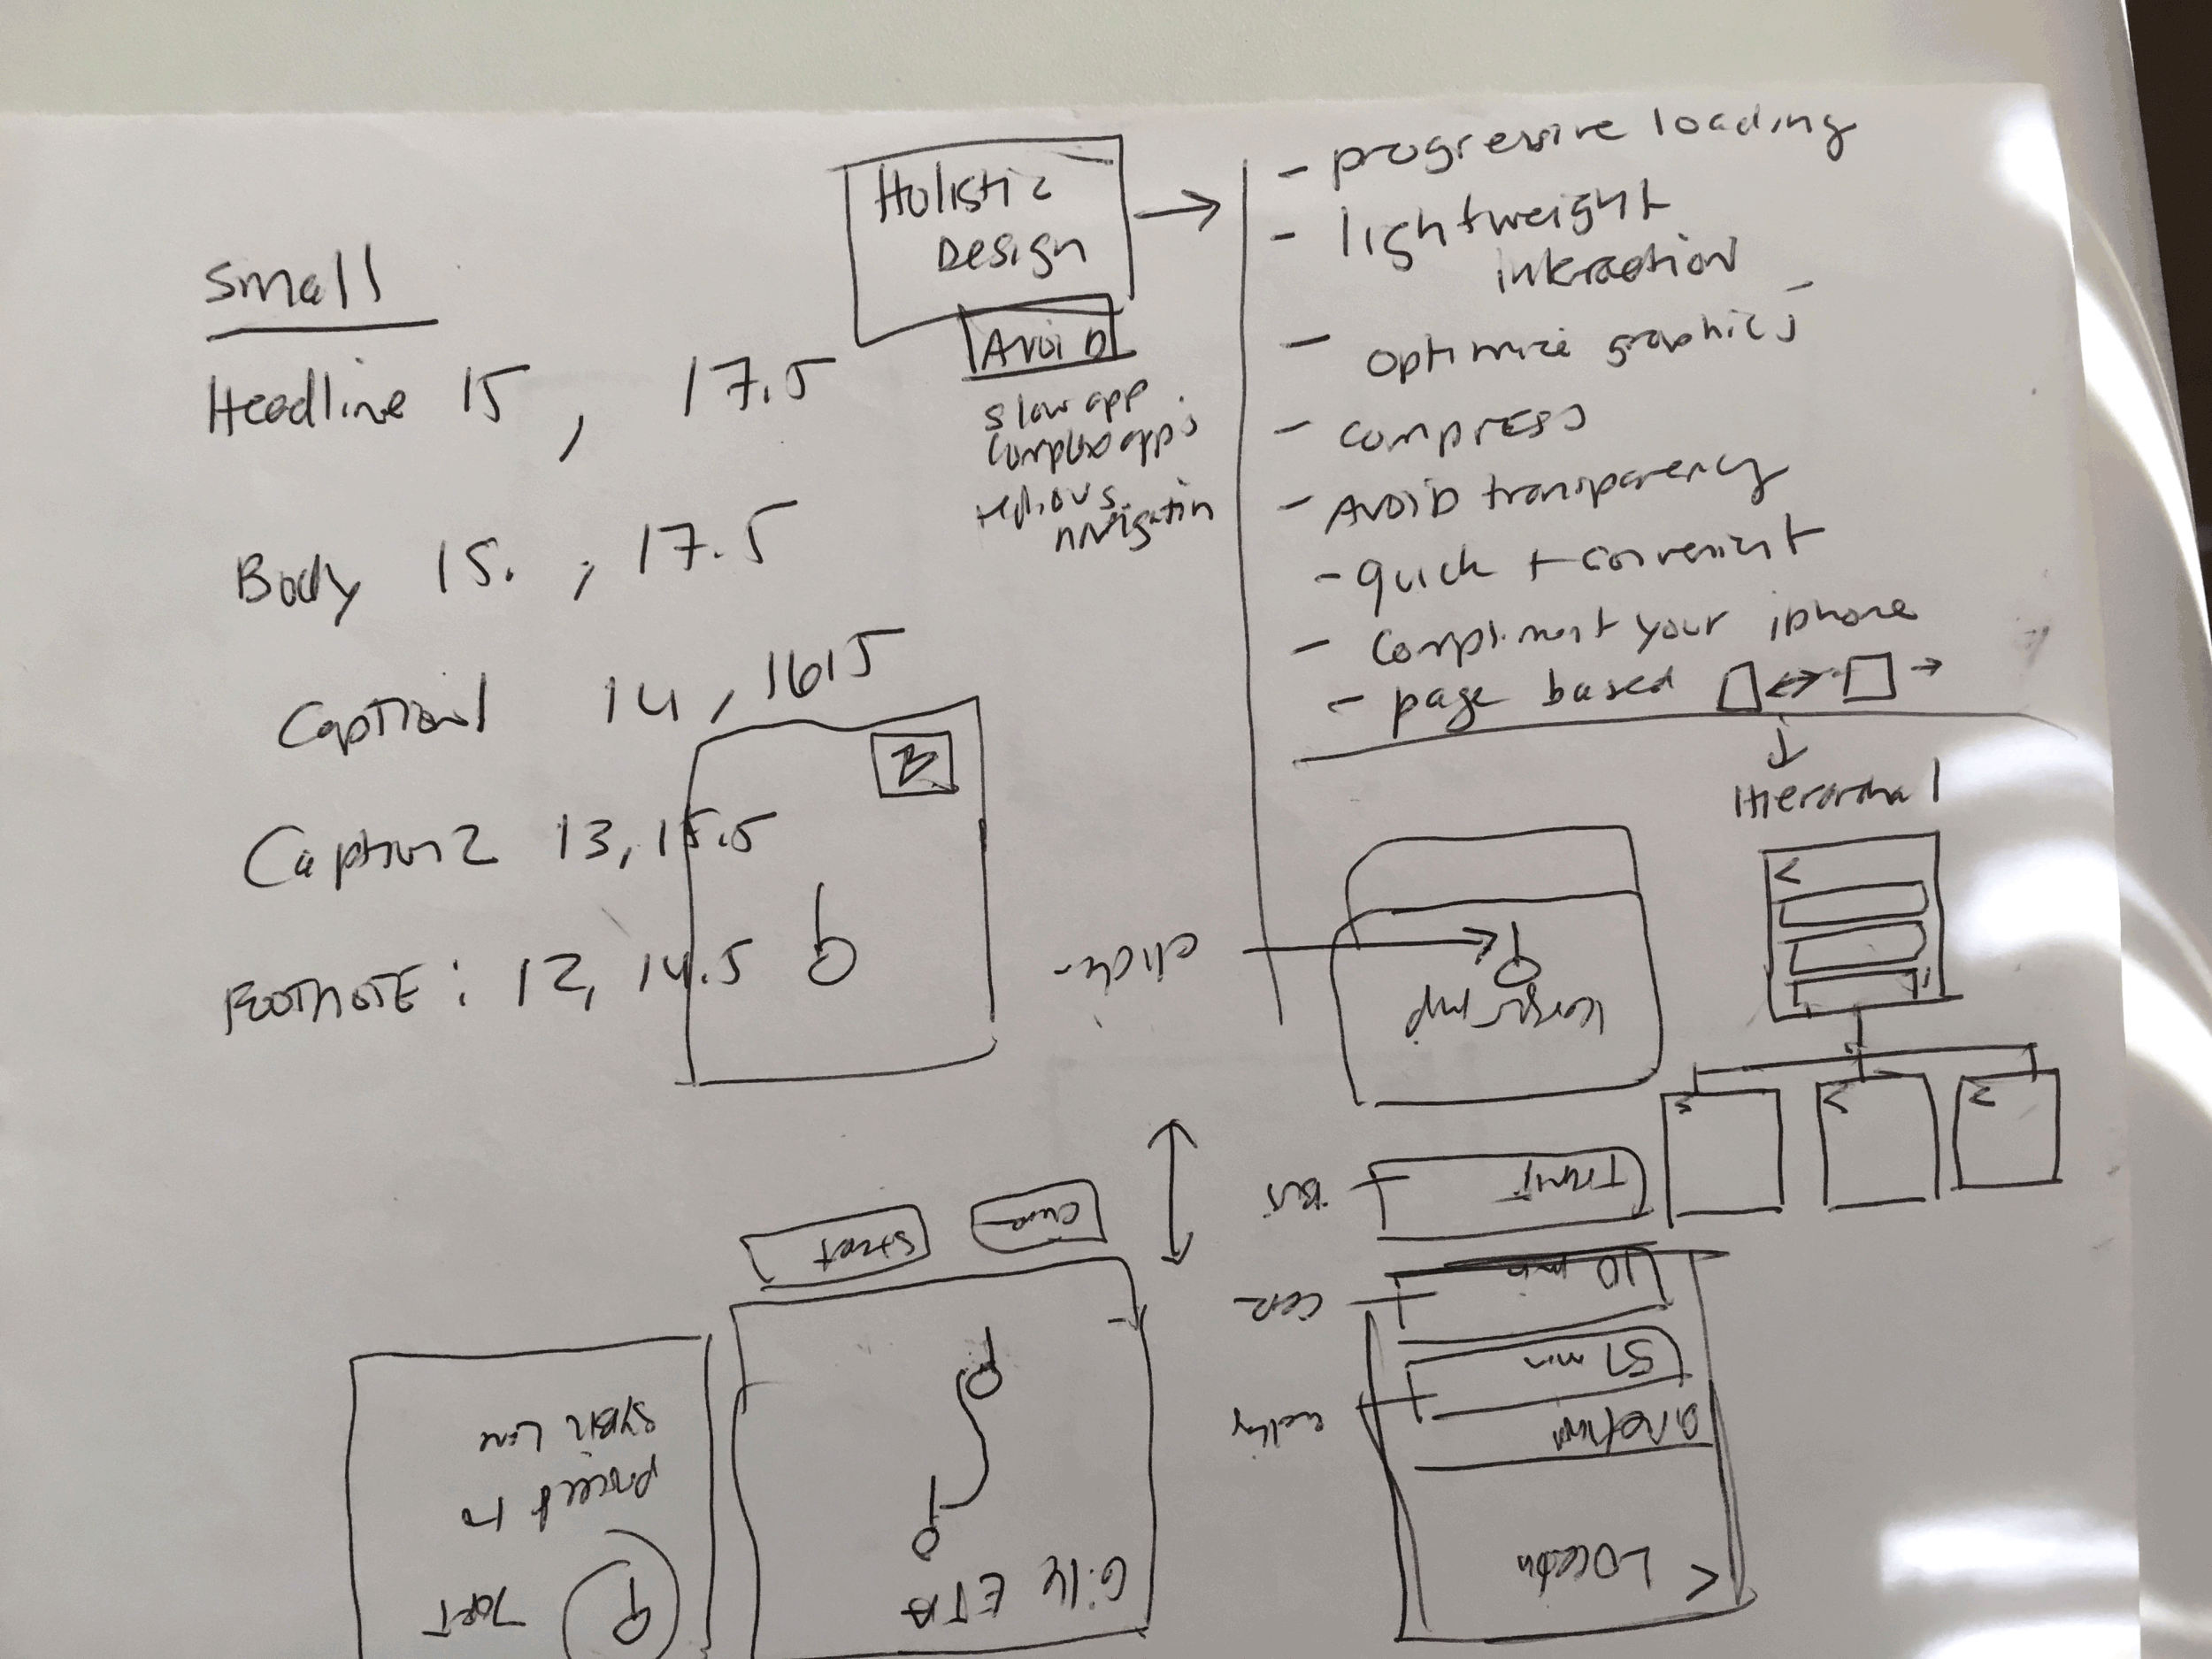 Small
Headline 15, 17.5
Body 15. , 17.5
Caption1 14, 16.5
Caption2 13, 15.5
FOOTNOTE: 12, 14.5
Holistic
Design
AVOID
slow app
complex app's
tedious
navigation
- progressive loading
- lightweight
interaction
- optimize graphics
- compress
- AVOID transparency
- quick + convenient
- compliment your iphone
- page based
Hierarchal
click
map
Transit
BUS
10 min
car
51 min
Directions
Location
<
Street
6:14 ETA
70FT
proceed to